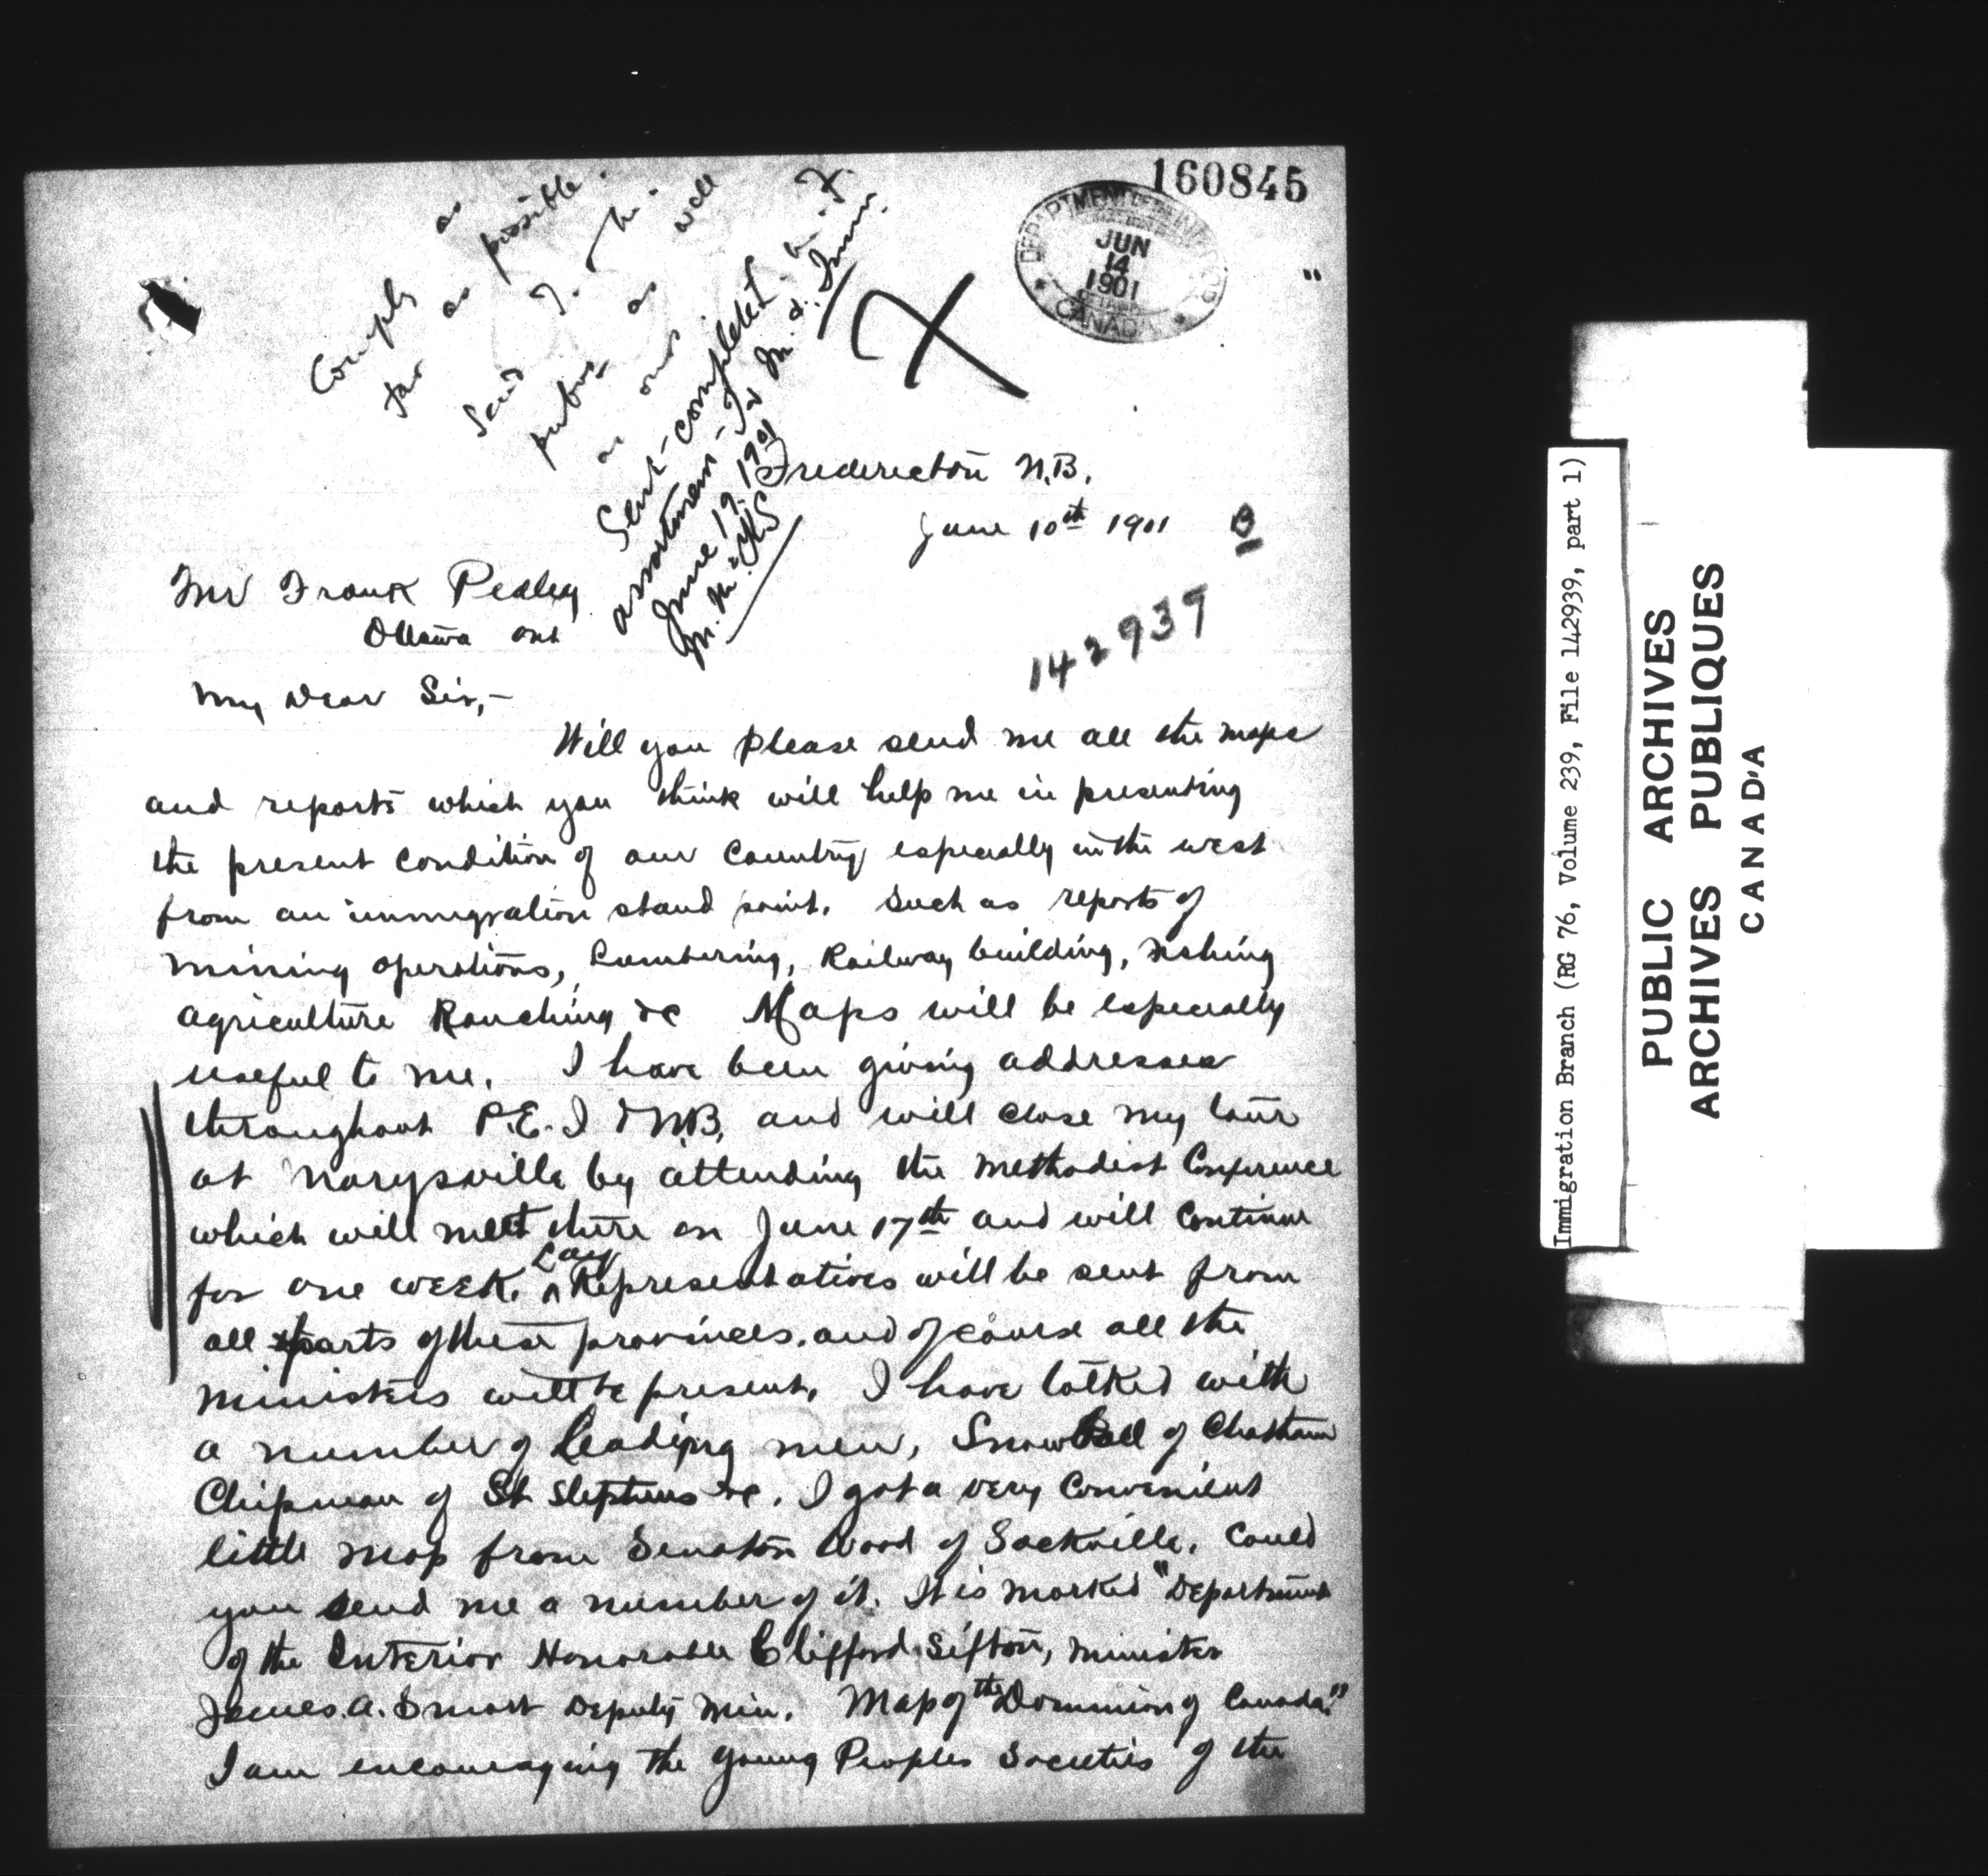 160845
DEPARTMENT OF THE INTERIOR
JUN
14
1901
OTTAWA
CANADA
Comply as
far as possible.
Send T.
pubns as well
as ours.
Sent complete
assortment
June 19. 1901
Fredericton N.B.
June 10th 1901
B
Mr Frank Pedley
Ottawa Ont
142939
My Dear Sir,-
Will you please send me all the maps
and reports which you think will help me in presenting
the present condition of our Country especially in the west
from an immigration stand point. Such as reports of
mining operations, Lumbering, Railway building, Fishing
agriculture Ranching &c Maps will be especially
useful to me. I have been giving addresses
throughout P.E.I & N.B. and will close my tour
at Marysville by attending the Methodist Conference
which will meet there on June 17th and will continue
for one week. Lay Representatives will be sent from
all parts of these provinces. and of course all the
ministers will be present. I have talked with
a number of Leading men, SnowBall of Chatham
Chipman of St Stephens &c. I got a very convenient
little map from Senator Wood of Sackville. Could
you send me a number of it. It is marked "Department
of the Interior Honorable Clifford Sifton, Minister
James. A. Smart Deputy Min. Map of the Dominion of Canada."
I am encouraging the Young Peoples Societies of the
Immigration Branch (RG 76, Volume 239, File 142939, part 1)
PUBLIC ARCHIVES
ARCHIVES PUBLIQUES
CANADA